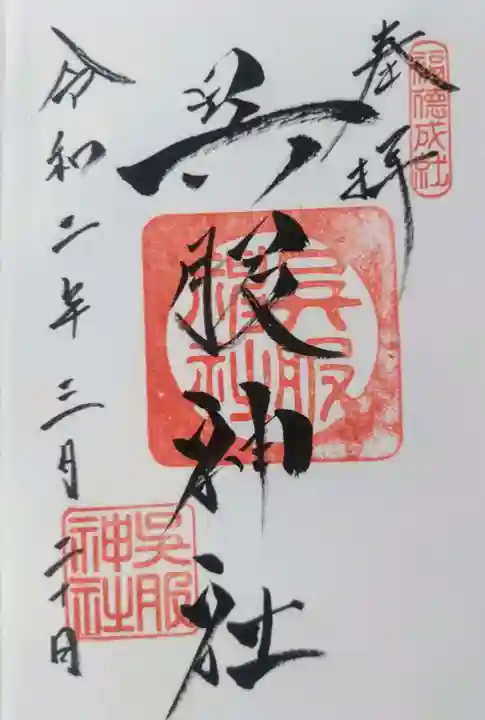 福德成社
奉拝
呉服神社
呉服神社
令和二年三月二十日
呉服神社